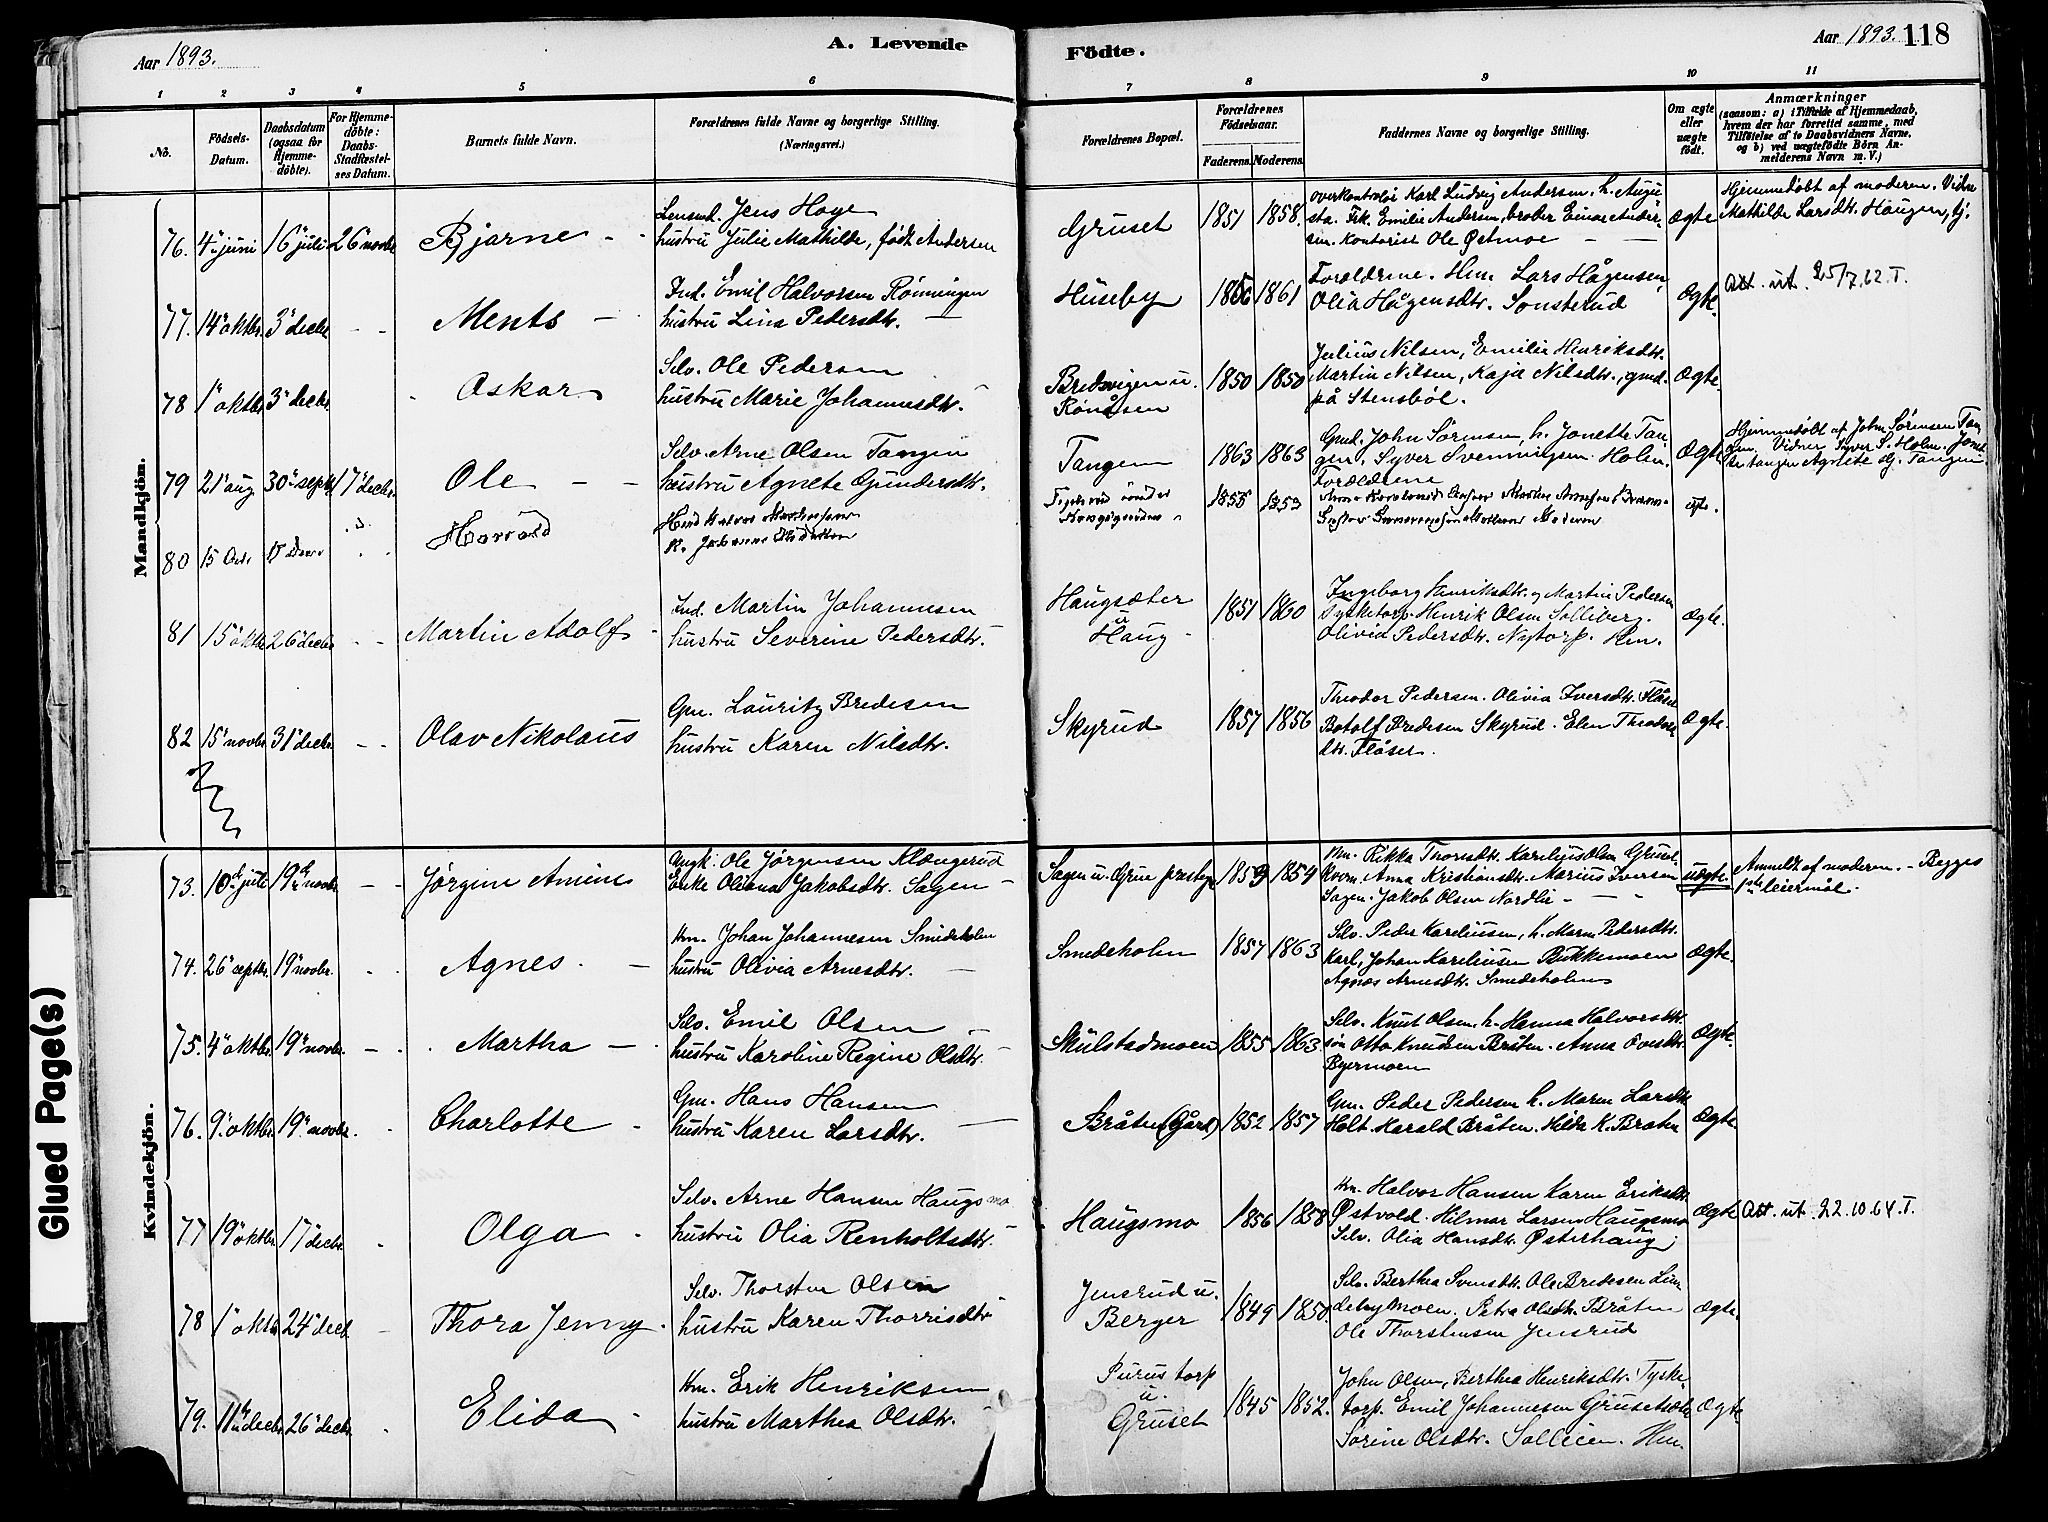 Aar 1893.
A. Levende
Födte.
Aar 1893. 118
1 2 3 4 5 6 7 8 9 10 11
No.
Födsels-Datum.
Daabsdatum (ogsaa for Hjemme-döbte).
For Hjemme-döbte: Daabs-Stadfæstel-ses Datum.
Barnets fulde Navn.
Forældrenes fulde Navne og borgerlige Stilling. (Næringsvei.)
Forældrenes Bopæl.
Forældrenes Födselsaar.
Faderens. Moderens.
Faddernes Navne og borgerlige Stilling.
Om ægte eller uægte födt.
Anmærkninger
(saasom: a) i Tilfælde af Hjemmedaab,
hvem der har forrettet samme, med
Tilföielse af to Daabsvidners Navne,
og b) ved uægtefödte Börn An-
melderens Navn m. V.)
Mandkjön.
76. 4 juni 16 juli 26 novbr Bjarne
Lensmd. Jens Hoye
hustru Julie Mathilde, født Andersen
Gruset 1851 1858.
overkontrolør Karl Ludvig Andersen. h. Augu-
sta. Frk. Emilie Andersen, broder Einar Ander-
sen. Kontorist Ole Østmoe
Ægte
Hjemmedøbt af moderen. Vidne
Mathilde Larsdtr. Haugen, tj.
77. 14 oktbr. 3 decbr Ments
Ind. Emil Halvorsen Rønningen
hustru Lina Pedersdtr.
Huseby 1856 1861
Forældrene. Hm. Lars Hågensen,
Olia Hågensdtr. Sonsterud
Ægte.
Att. ut. 25/7.62.T.
78 1 oktbr 3 decbr. Oskar
Selv. Ole Pedersen
hustru Marie Johannesdtr.
Bredvigen u.
Rønåsen
1850 1850
Julius Nilsen, Emilie Henriksdtr.
Martin Nilsen, Kaja Nilsdtr., gmd.
på Stensbøl.
Ægte
79 21 aug. 30 septb 17 decbr. Ole
Selv. Arne Olsen Tangen
hustru Agnete Gundersdtr.
Tangen 1863 1863
Gmd. John Sørensen, h. Jonette Tan-
gen, Syver Svenningsen Holm.
Forældrene
Ægte
Hjemmedøbt af John Sørensen Tan-
gen. Vidner Syver S. Holm. Jonet-
te tangen Agnete tj. Tangen
80 15 Oct. 17 Decbr Haavald
1855 1853
81 15 oktbr 26 decbr Martin Adolf
Ind. Martin Johannesen
hustru Severine Pedersdtr.
Haugsæter
Haug
1851 1860
Ingeborg Henriksdtr. og Martin Pedersen
Tysketorp. Henrik Olsen Solliberg.
Olivia Pedersdtr. Nytorp. Hm.
Ægte.
82 15 novbr. 31 decbr. Olav Nikolaus
Gm. Lauritz Bredesen
hustru Karen Nilsdtr.
Skyrud 1857 1856
Theodor Pedersen. Olivia Iversdtr. Flåser
Botolf Bredesen Skyrud. Elen Theodors
dtr. Flåser.
Ægte.
Kvindekjön.
73. 10 juli 19 novbr. Jørgine Amine
Ungk. Ole Jørgensen Klængerud
Enke Oliana Jakobsdtr. Sagen
Sagen u. Grue prestegj 1859 1854
Hm. Rikka Thorsdtr. Karelius Olsen Gruset
Kvm. Anna Kristiansdtr. Marius Iversen
Sagen. Jakob Olsen Nordli
uægte.
Anmeldt af moderen. - Begges
1ste leiermål.
74. 26 septbr. 19 novbr. Agnes.
Hm. Johan Johannesen Smedeholm
hustru Olivia Arnesdtr.
Smedeholm 1857 1863
Selv. Peder Kareliusen, h. Maren Pedersdtr.
Karl, Johan Kareliusen Bukkemoen
Agnes Arnesdtr. Smedeholm
Ægte.
75. 4 oktbr. 19 novbr. Martha
Selv. Emil Olsen
hustru Karoline Regine Olsdtr.
Skulstadmoen 1855 1863.
Selv. Knut Olsen, h. Hanna Halvorsdtr.
søn Otto Knudsen Bråten. Anna Ovesdtr.
Byermoen
Ægte.
76. 9 oktbr. 19 novbr. Charlotte
Gm. Hans Hansen
hustru Karen Larsdtr.
Bråten (Gård) 1852 1857
Gm. Peder Pedersen h. Maren Larsdtr.
Holt. Harald Bråten. Hilda K. Braten
Ægte.
77 19 oktbr. 17 decbr. Olga
Selv. Arne Hansen Haugsmo
hustru Olia Renholtsdtr.
Haugsmo 1856 1858
Hm. Halvor Hansen Karen Eriksdtr.
Østvold. Hilmar Larsen Haugsmo
Selv. Olia Hansdtr. Østerhaug
Ægte
Att. ut. 22.10.64.T.
78 1 oktbr 24 decb. Thora Jenny.
Selv. Thorsten Olsen
hustru Karen Thorrisdtr
Jensrud u.
Berger
1849 1850.
Selv. Berthea Svensdtr. Ole Bredesen Lin-
debymoen. Petra Olsdtr. Bråten
Ole Thorstensen Jensrud
Ægte.
79. 11 decbr. 26 decbr. Elida
Hm. Erik Henriksen
hustru Marthea Olsdtr.
Purustorp
u.
Gruset
1845 1852.
John Olsen, Berthea Henriksdtr. Tyske-
torp. Emil Johannesen Grusetsæter
Sorine Olsdtr. Sollien. Hm.
Ægte
Glued Page(s)